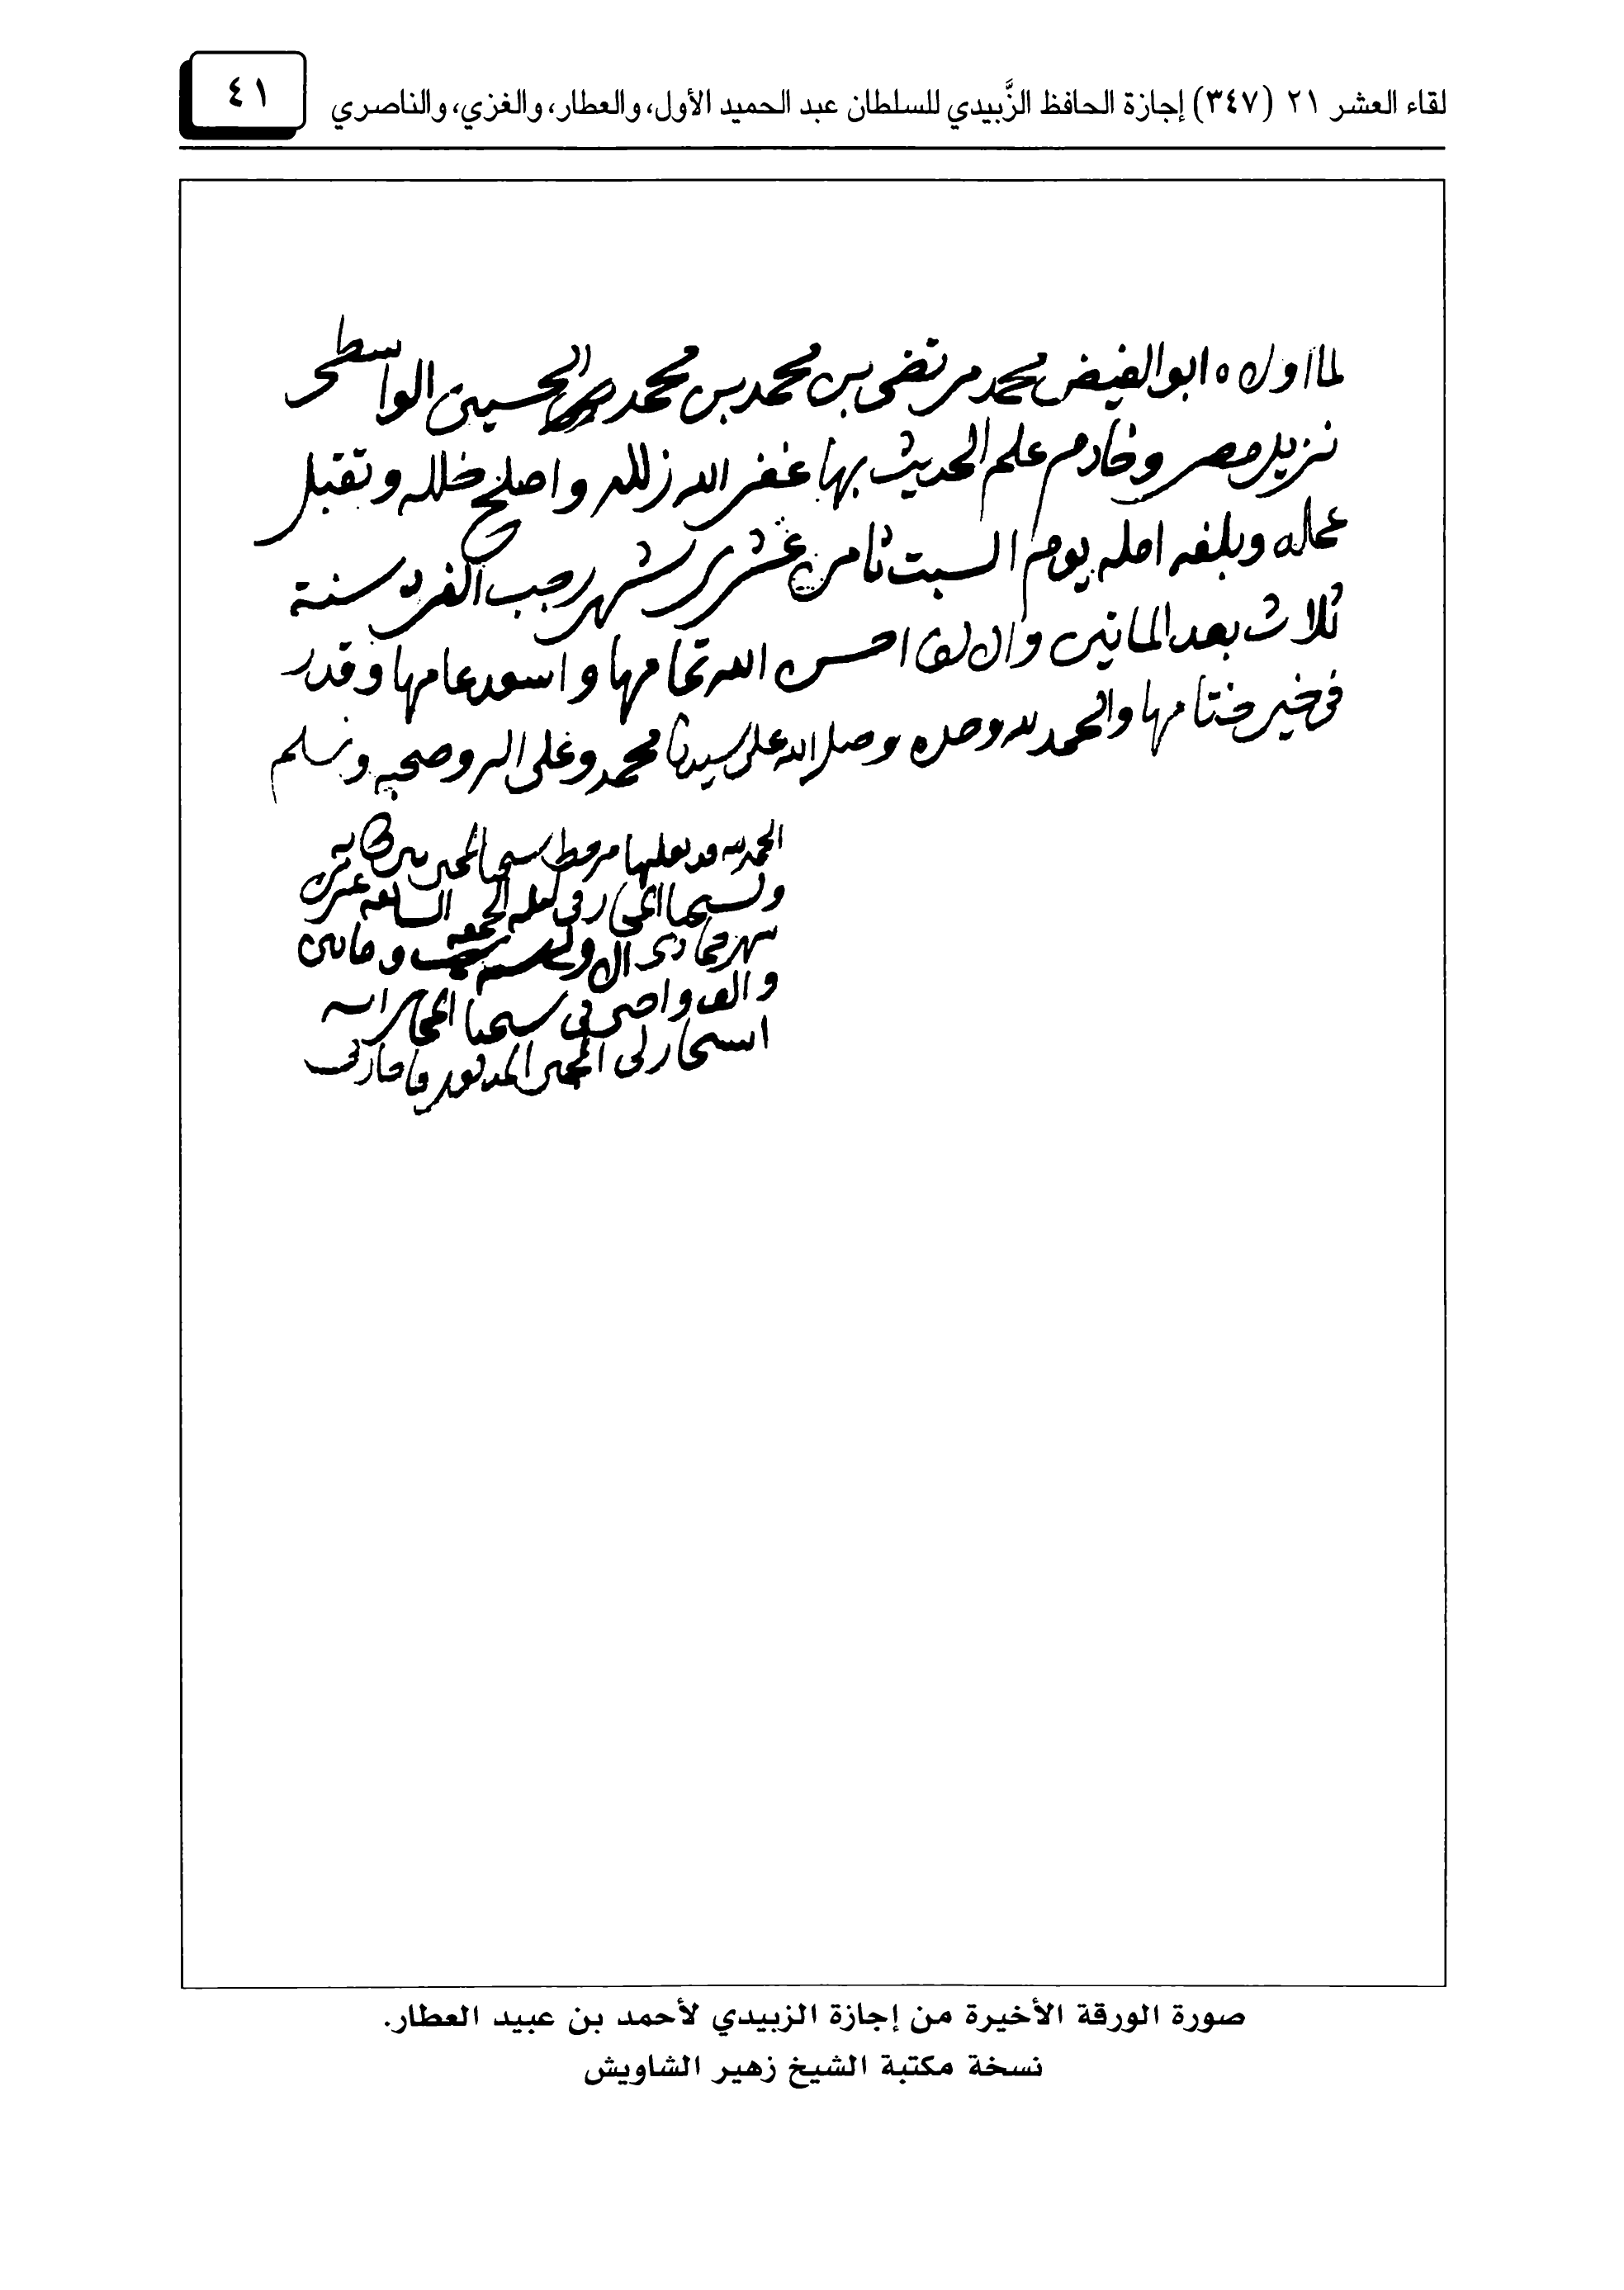 لقاء العشر ٢١ (٣٤٧) إجازة الحافظ الزَّبيدي للسلطان عبد الحميد الأول، والعطار، والغزي، والناصري
٤١
لما اولاه ابو الفيض محمد مرتضى بن محمد بن محمد الحسيني الواسطي
نزيل مصر وخادم علم الحديث بها غفر الله زلله واصلح خلله وتقبل
عمله وبلغه امله يوم السبت ثامن عشري شهر رجب الفرد سنة
ثلاث بعد المائتين والالف احسن الله تمامها واسعد عامها وقدر
في خير ختامها والحمد لله وحده وصلى الله على سيدنا محمد وعلى اله وصحبه وسلم
الحمد لله نقلها من خط شيخنا المجيز
وشيخنا المجاز في ليلة الجمعة السابعة عشر من
شهر جمادى الاولى سنة ومائتين
والف واخبرني شيخنا المجاز انه
استجاز لي المجيز المذكور فاجازني
صورة الورقة الأخيرة من إجازة الزبيدي لأحمد بن عبيد العطار.
نسخة مكتبة الشيخ زهير الشاويش